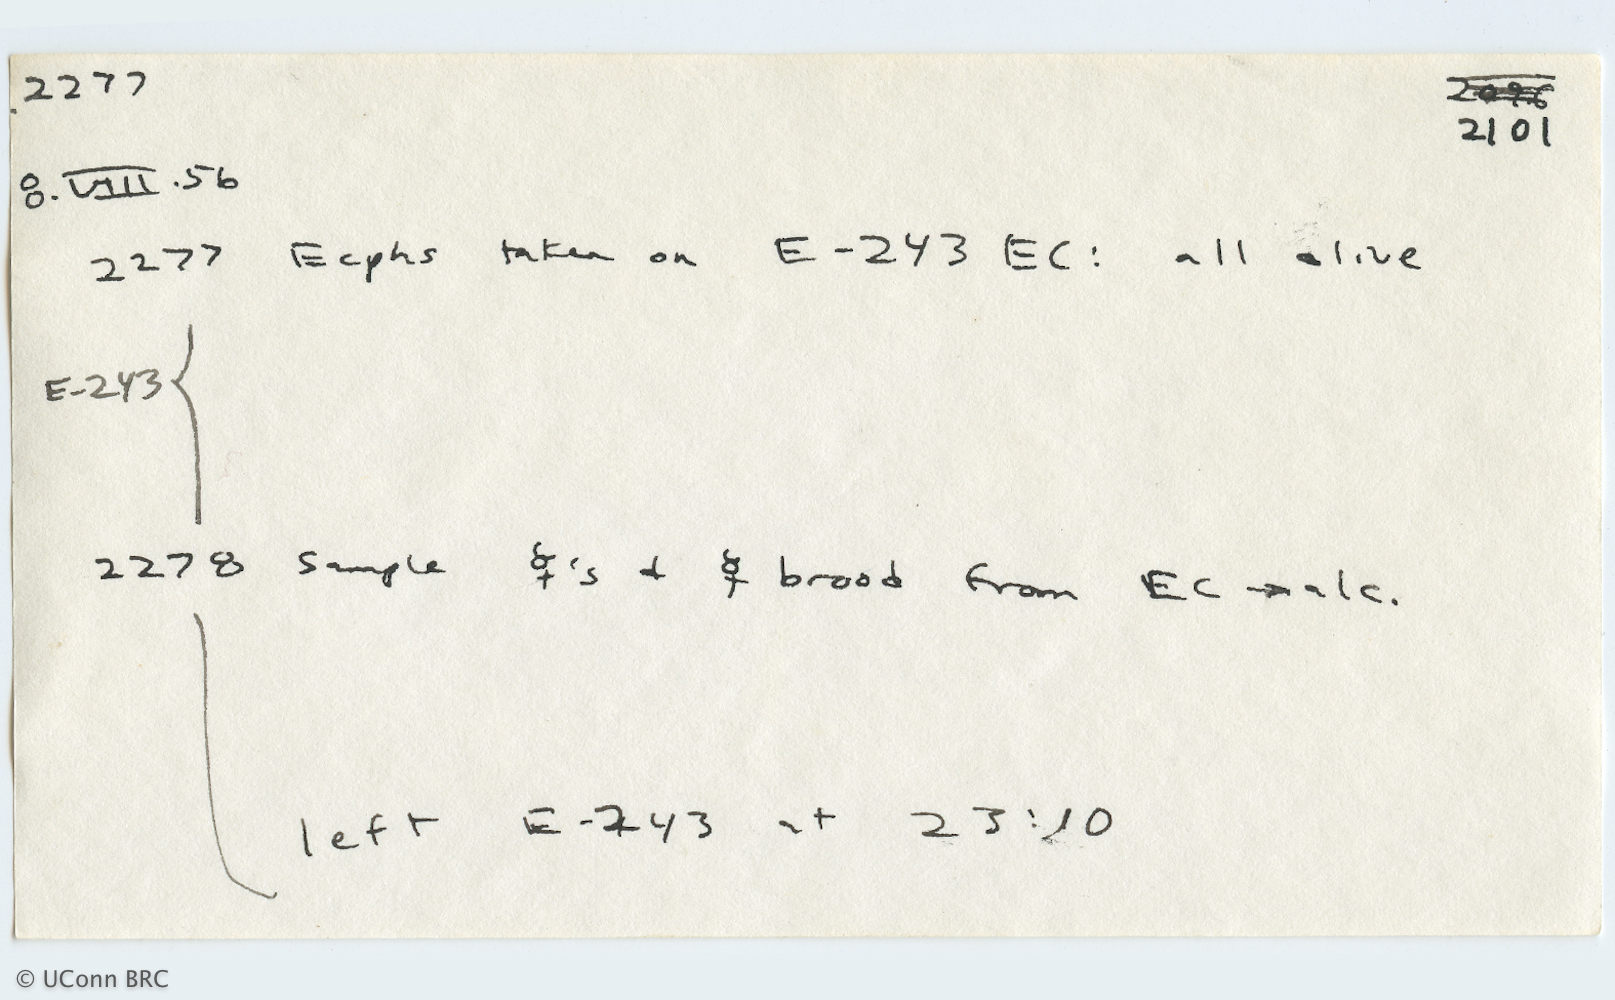 2277
2096
2101
8.VIII.56
2277 Ecphs taken on E-243 EC: all alive
E-243
2278 Sample ☿'s + ☿ brood from EC → alc.
left E-243 at 23:10
© UConn BRC